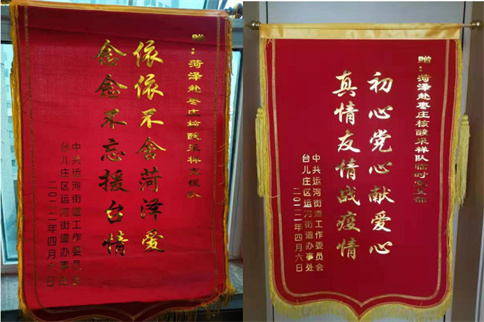 赠:菏泽赴枣庄核酸采样支援队
依依不舍菏泽爱
念念不忘援台情
中共运河街道工作委员会
台儿庄区运河街道办事处
二〇二二年四月六日
赠:菏泽赴枣庄核酸采样队临时党支部
初心党心献爱心
真情友情战疫情
中共运河街道工作委员会
台儿庄区运河街道办事处
二〇二二年四月六日